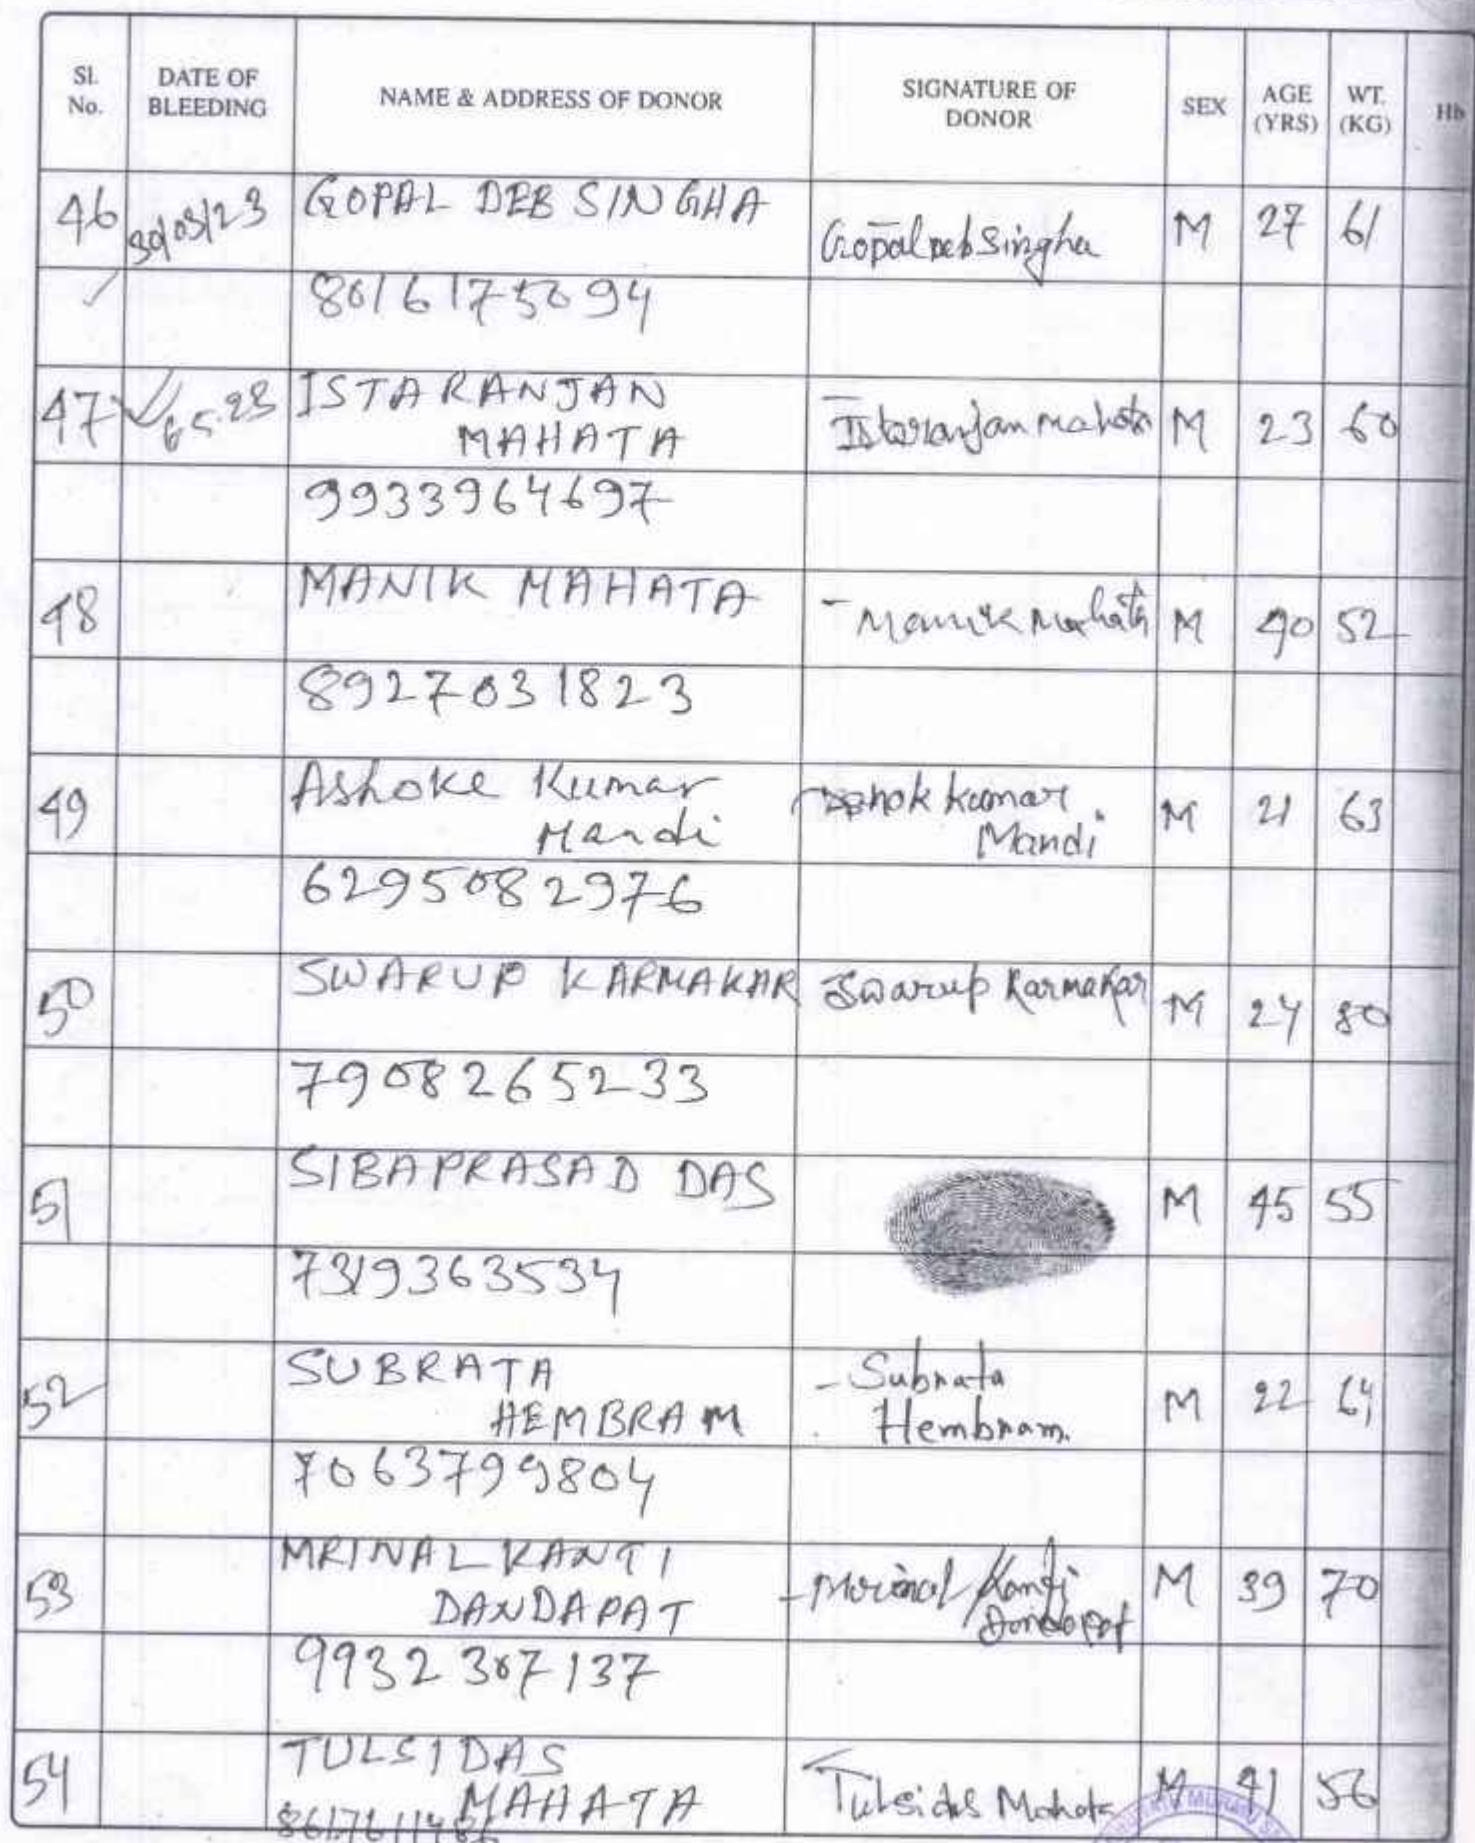 Sl. No. DATE OF BLEEDING NAME & ADDRESS OF DONOR SIGNATURE OF DONOR SEX AGE (YRS) WT. (KG) Hb
46 30/03/23 GOPAL DEB SINGHA Gopal Deb Singha M 27 61
8016175094
47 ISTARANJAN
MAHATA Istaranjan Mahata M 23 60
9933964697
48 MANIK MAHATA Manik Mahata M 40 52
8927031823
49 Ashoke Kumar Ashok Kumar M 21 63
Mandi Mandi
6295082976
50 SWARUP KARMAKAR Swarup Karmakar M 24 80
7908265233
51 SIBAPRASAD DAS M 45 55
7319363534
52 SUBRATA Subrata M 22 64
HEMBRAM Hembram.
7063799804
53 MRINAL KANTI Mrinal Kanti M 39 70
DANDAPAT Dandapat
9932307137
54 TULSIDAS
MAHATA Tulsidas Mahata M 41 56